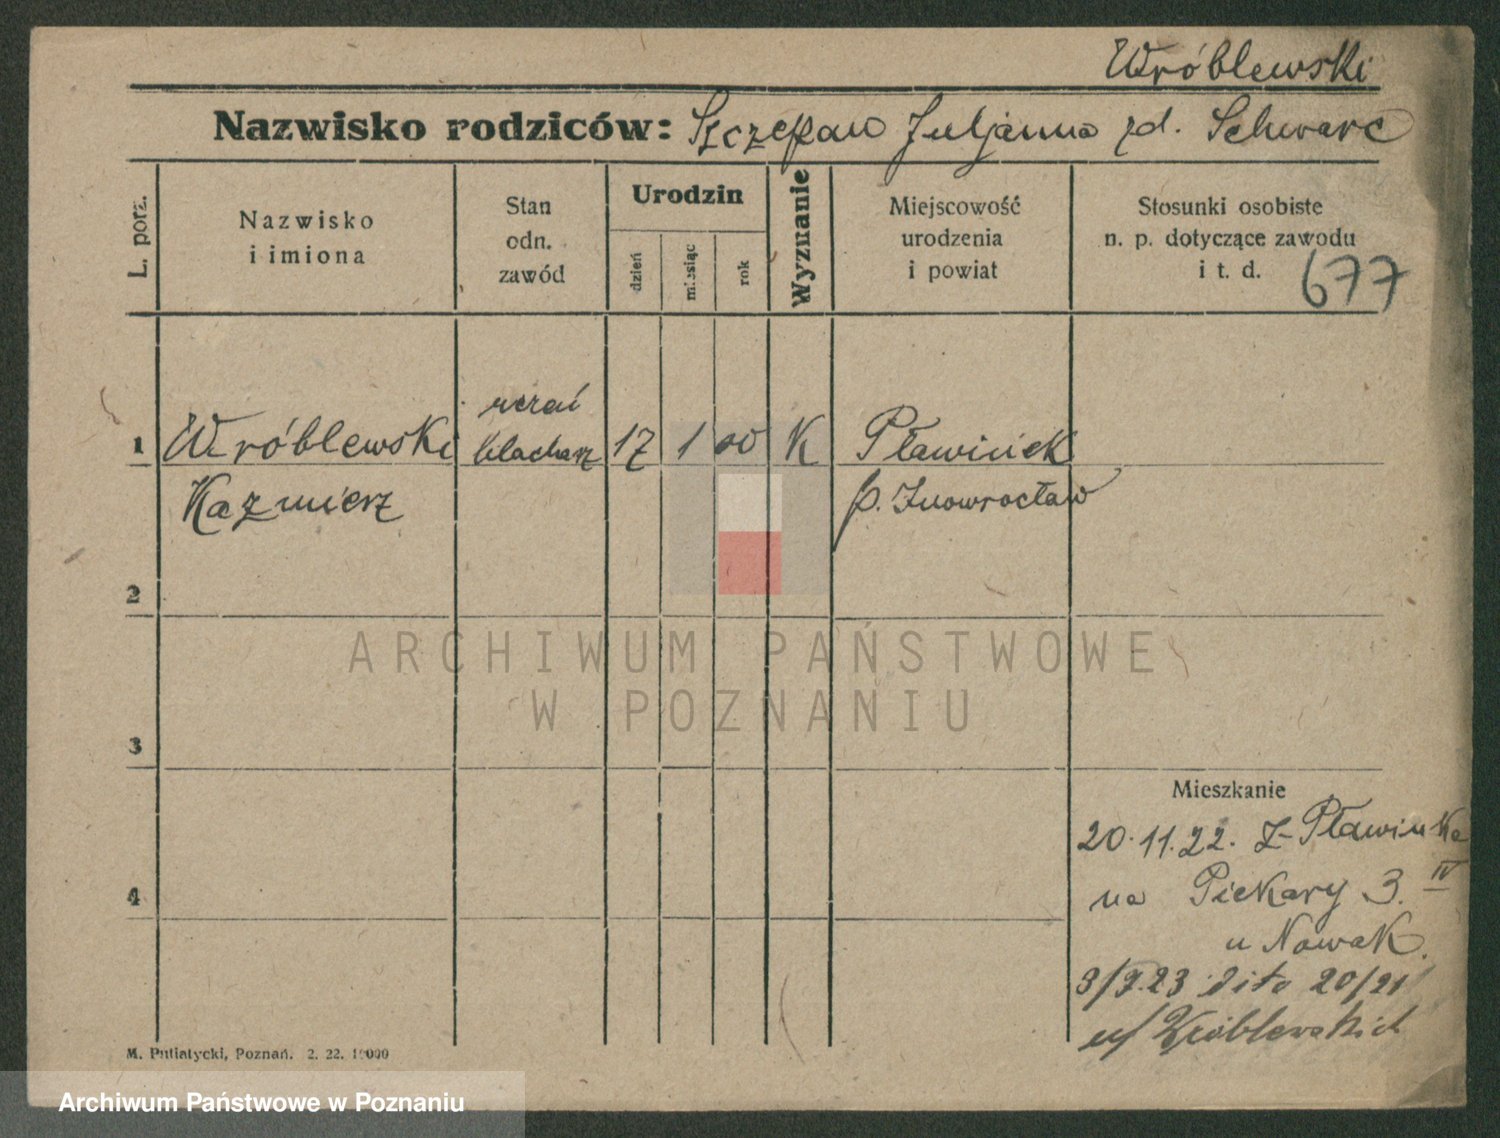 Wróblewski
Nazwisko rodziców: Szczepan Juljanna zd. Schwarc
L. porz.
Nazwisko
i imiona
Stan
odn.
zawód
Urodzin
dzień
miesiąc
rok
Wyznanie
Miejscowość
urodzenia
i powiat
Stosunki osobiste
n. p. dotyczące zawodu
i t. d.
677
1
Wróblewski
Kazmierz
uczeń
blacharz
17
1
00
K
Pławinek
p. Inowrocław
2
3
4
ARCHIWUM PAŃSTWOWE
W POZNANIU
Mieszkanie
20.11.22. z Pławinka
na Piekary 3. IV
u Nowak.
3/9.23 dito 20/21
u/ Wróblewskich
M. Putiatycki, Poznań. 2. 22. 10000
Archiwum Państwowe w Poznaniu